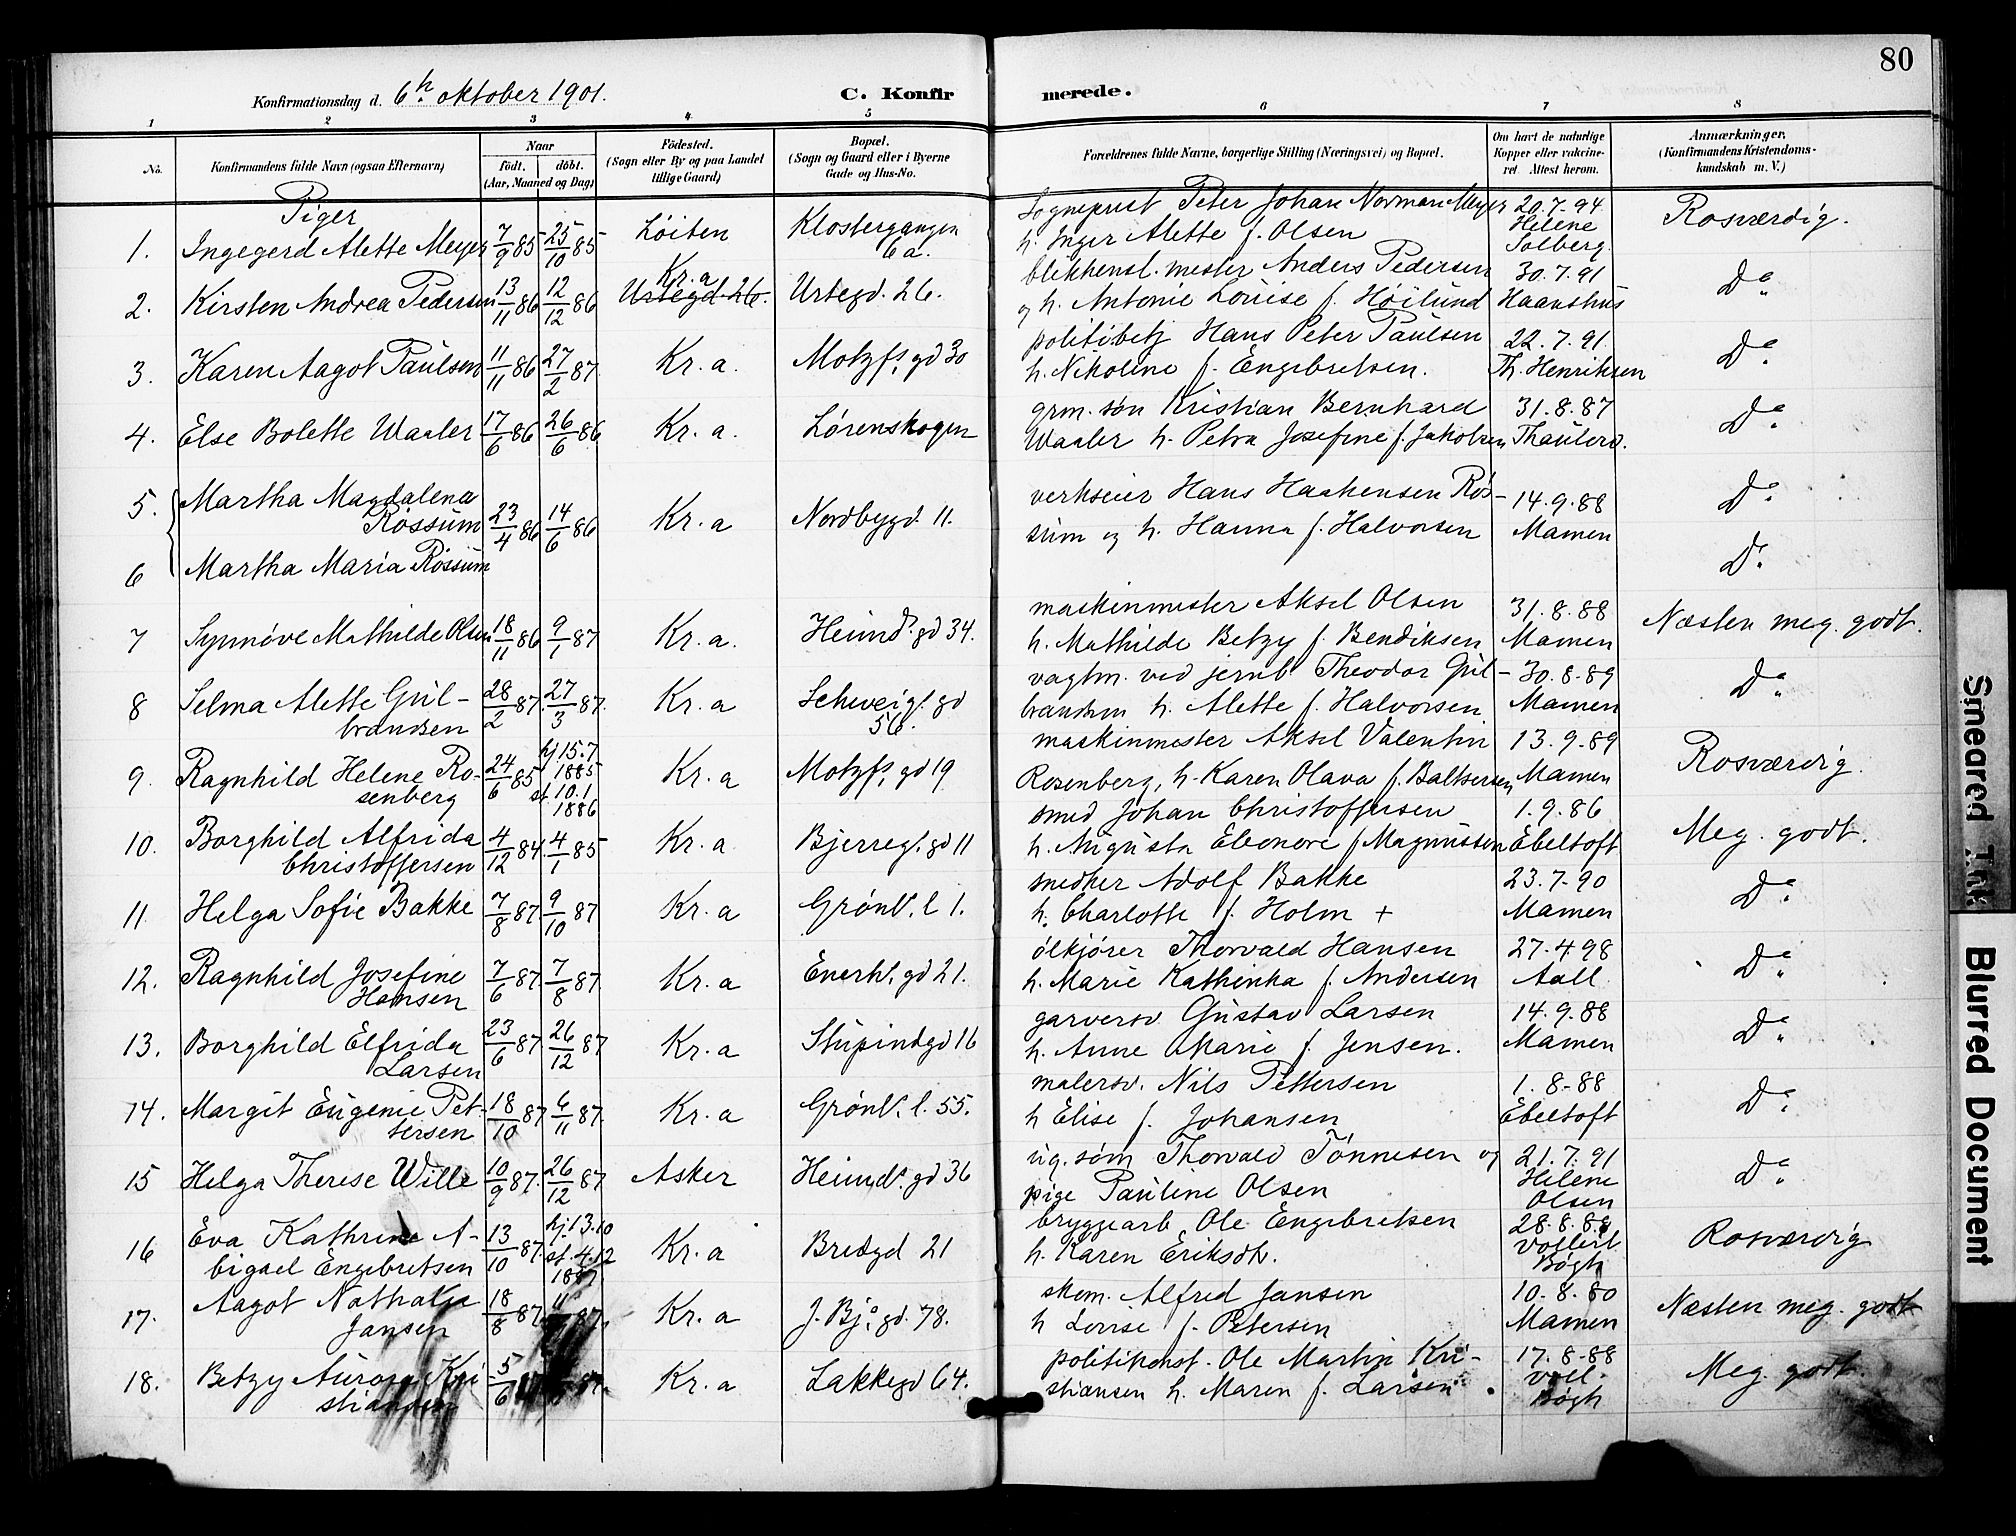 80
Konfirmationsdag d. 6h. oktober 1901. C. Konfirmerede.
1 2 3 4 5 6 7 8
No. Konfirmandens fulde Navn (ogsaa Efternavn) Naar födt. döbt. (Aar, Maaned og Dag) Födested. (Sogn eller By og paa Landet tillige Gaard) Bopæl. (Sogn og Gaard eller i Byerne Gade og Hus-No. Forældrenes fulde Navne, borgerlige Stilling (Næringsvei) og Bopæl. Om havt de naturlige Kopper eller vakcineret. Attest herom. Anmærkninger, (Konfirmandens Kristendomskundskab m. V.)
Piger
1. Ingegerd Alette Meyer 7/9 85 25/10 85 Löiten Klostergangen 6a. Sogneprest Peter Johan Norman Meyer h. Inger Alette f. Olsen 20.7.94 Helene Solberg. Rosværdig.
2. Kirsten Andrea Pedersen 13/11 86 12/12 86 Kr.a Urtegd. 26. Urtegd. 26. blikkensl. mester Anders Pedersen og h. Antonie Louise f. Höilund 30.7.91 Haanshus Do.
3. Karen Aagot Paulsen 11/11 86 27/2 87 Kr.a. Motzfs. gd 30 politibetj Hans Peter Paulsen h. Nikoline f. Engebretsen. 22.7.91 Th. Henriksen Do.
4. Else Bolette Waaler 17/6 86 26/6 86 Kr.a. Lørenskogen grm. søn Kristian Bernhard Waaler h. Petra Josefine f. Jakobsen 31.8.87 Thaulow. Do.
5. Martha Magdalena Røssum 23/4 86 14/6 86 Kr.a Nordbygd. 11. verkseier Hans Haakensen Røssum og h. Hanna f. Halvorsen 14.9.88 Mamen Do.
6 Martha Maria Røssum Do.
7 Synnöve Mathilde Olsen 18/11 86 9/1 87 Kr.a. Heimds. gd 34. maskinmester Aksel Olsen h. Mathilde Betzy f. Bendiksen 31.8.88 Mamen Næsten meg. godt.
8 Selma Alette Gulbrandsen 28/2 87. 27/3 87. Kr.a Schweigs. gd 56. vagtm. ved jernb. Theodor Gulbrandsen h. Alette f. Halvorsen 30.8.89 Mamen Do.
9. Ragnhild Helene Rosenberg 24/6 85 hj 15.7 1885 st. 10.1 1886 Kr.a Motzfs. gd 19 maskinmester Aksel Valentin Rosenberg, h. Karen Olava f. Baltsersen 13.9.89 Mamen Rosværdig.
10. Borghild Alfrida Christoffersen 4/12 84. 4/1 85 Kr.a Bjerregs. gd 11 smed Johan Christoffersen h. Augusta Eleonore f Magnussen 1.9.86 Ebeltoft Meg. godt.
11. Helga Sofie Bakke 7/8 87. 9/10 87 Kr.a Grønls. l 1. snedker Adolf Bakke h. Charlotte f. Holm + 23.7.90 Mamen Do.
12. Ragnhild Josefine Hansen 7/6 87. 7/8 87. Kr.a Enerhs. gd 21. ölkjører Thorvald Hansen h. Marie Kathinka f. Andersen 27.4.98 Aall Do.
13. Borghild Elfrida Larsen 23/6 87. 26/12 87 Kr.a Stupindgd 16 garversv Gustav Larsen h. Anne Marie f. Jensen. 14.9.88 Mamen Do.
14. Margit Eugenie Pettersen 18/10 87 6/11 87. Kr.a Grønls. l. 55. malersv. Nils Pettersen h Elise f. Johansen 1.8.88 Ebeltoft Do.
15 Helga Therese Wille 10/9 87. 26/12 87 Asker Heimds. gd 36 ug. søm Thorvald Tønnesen og pige Pauline Olsen 21.7.91 Helene Olsen Do.
16 Eva Kathrine Abigael Engebretsen 13/10 87. hj. 13.10 st. 4.12 1887 Kr.a Bredgd 21 bryggearb. Ole Engebretsen h. Karen Eriksdt. 28.8.88 Vollert Bøgh Rosværdig
17. Aagot Nathalie Jansen 18/8 87. 87. Kr.a J. Bjs. gd. 78. skom. Alfred Jansen h Lovise f. Petersen 10.8.80 Mamen Næsten meg. godt
18. Betzy Aurora Kristiansen 5/6 Kr.a Lakkegd 64. politikonst. Ole Martin Kristiansen h. Maren f. Larsen 17.8.88 Voll. Bøgh Meg. godt.
Smeared Ink
Blurred Document